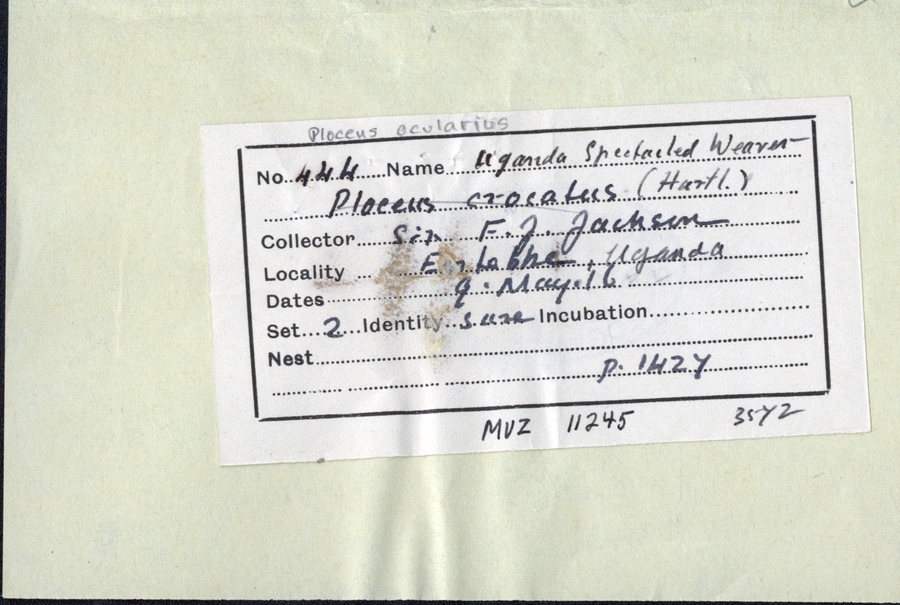 Ploceus ocularius
No. 444 Name Uganda Spectacled Weaver
Ploceus crocatus (Hartl.)
Collector Sir F. J. Jackson
Locality Entebbe, Uganda
Dates 9. May. 16
Set 2 Identity sure Incubation
Nest
p. 1427
MVZ 11245 35Y2